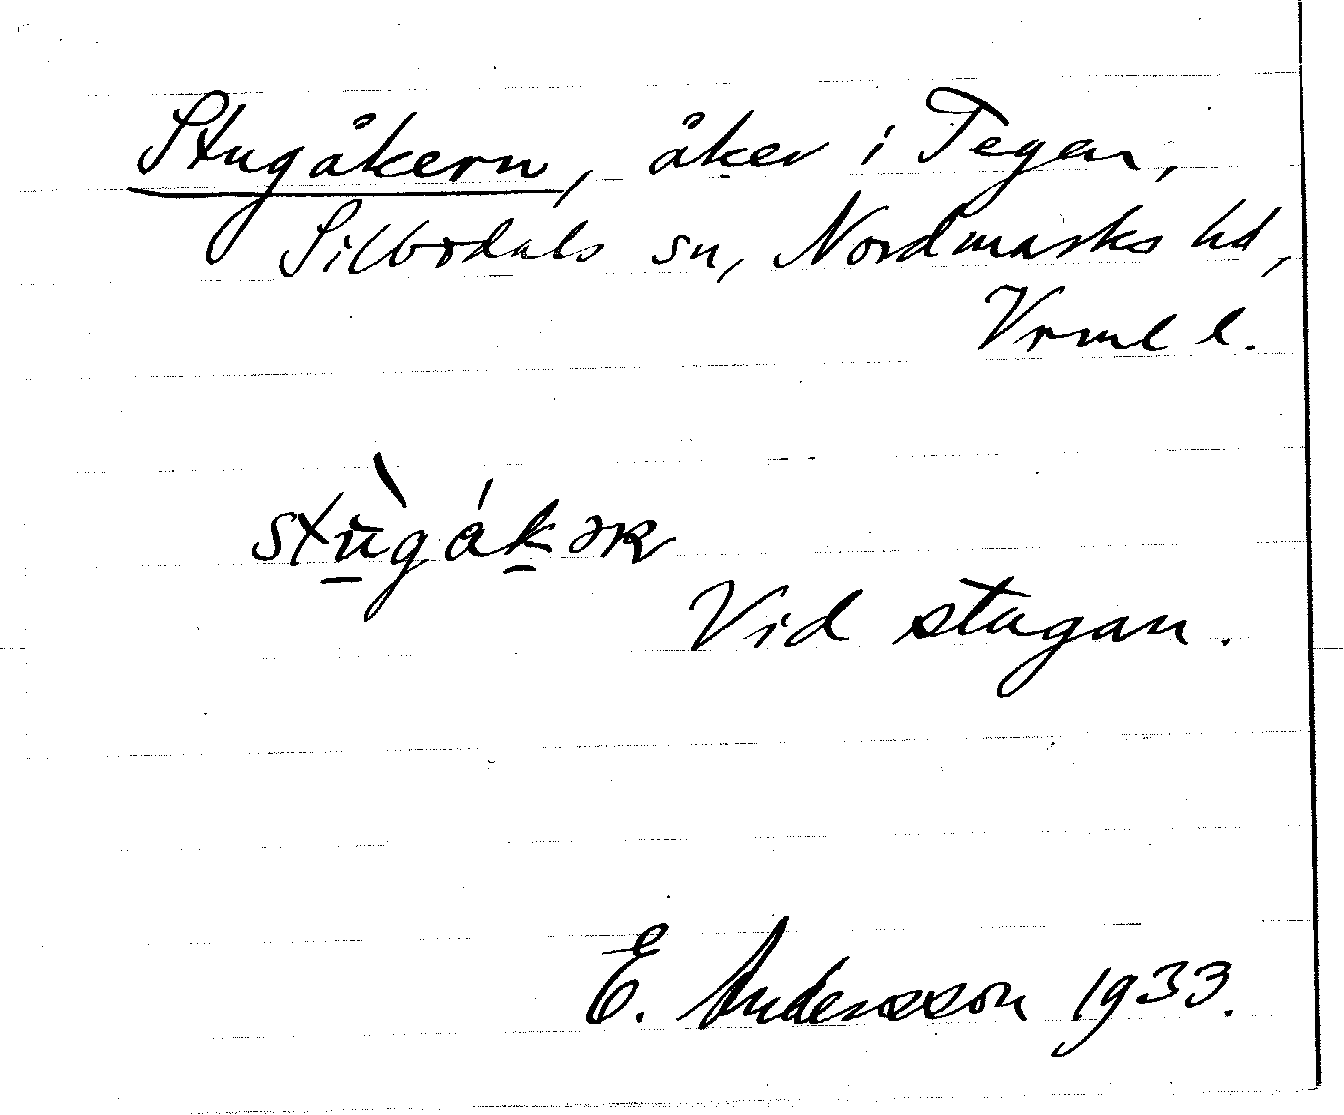 Stugåkern, åker i Tegen,
Silbodals sn, Nordmarks hd,
Vrml l.
stùgákəʀ
Vid stugan.
E. Andersson 1933.